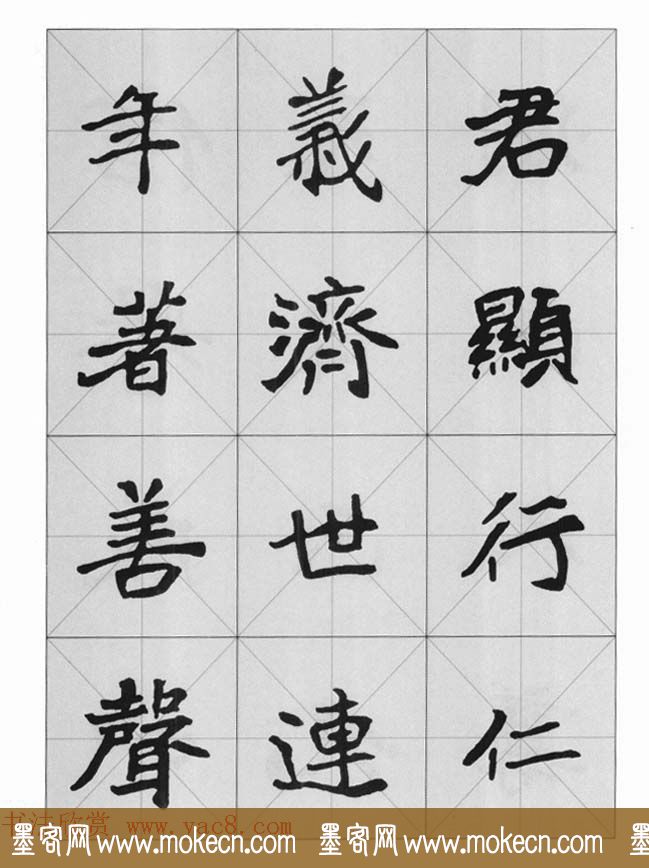 君顯行仁
義濟世連
年著善聲
书法欣赏 www.yac8.com
墨客网 www.mokecn.com 墨客网 www.mokecn.com